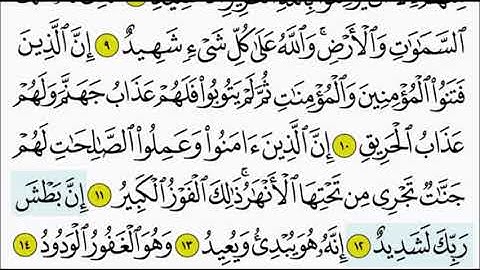 السَّمَٰوَٰتِ وَالْأَرْضِ ۚ وَاللَّهُ عَلَىٰ كُلِّ شَىْءٍ شَهِيدٌ ٩ إِنَّ الَّذِينَ
فَتَنُوا۟ الْمُؤْمِنِينَ وَالْمُؤْمِنَٰتِ ثُمَّ لَمْ يَتُوبُوا۟ فَلَهُمْ عَذَابُ جَهَنَّمَ وَلَهُمْ
عَذَابُ الْحَرِيقِ ١٠ إِنَّ الَّذِينَ ءَامَنُوا۟ وَعَمِلُوا۟ الصَّٰلِحَٰتِ لَهُمْ
جَنَّٰتٌ تَجْرِى مِن تَحْتِهَا الْأَنْهَٰرُ ۚ ذَٰلِكَ الْفَوْزُ الْكَبِيرُ ١١ إِنَّ بَطْشَ
رَبِّكَ لَشَدِيدٌ ١٢ إِنَّهُۥ هُوَ يُبْدِئُ وَيُعِيدُ ١٣ وَهُوَ الْغَفُورُ الْوَدُودُ ١٤